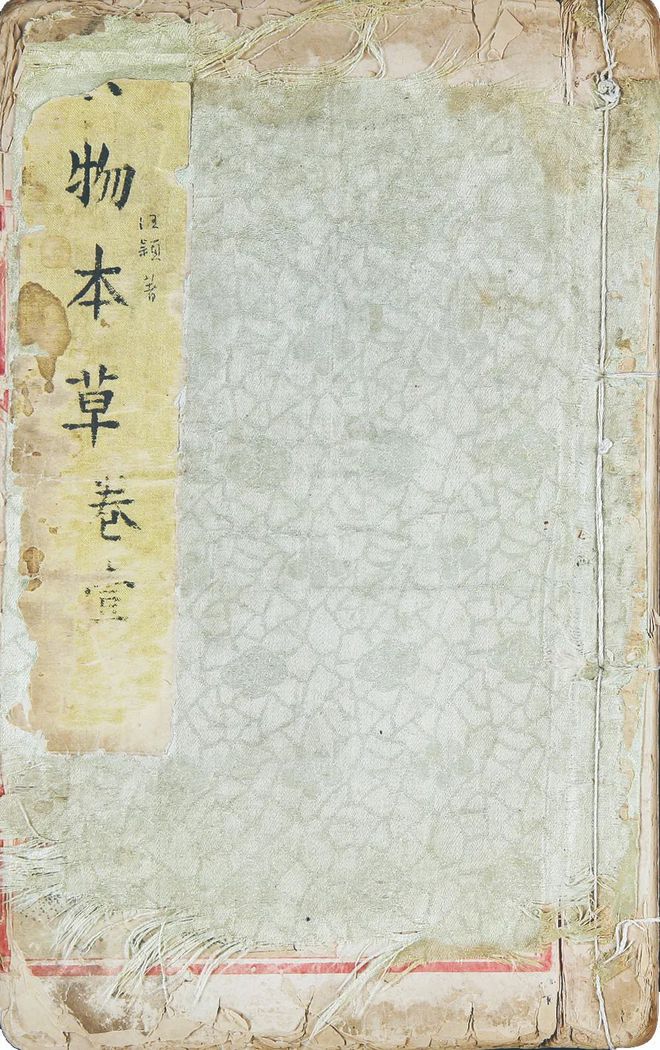 物本草卷壹
汪穎著